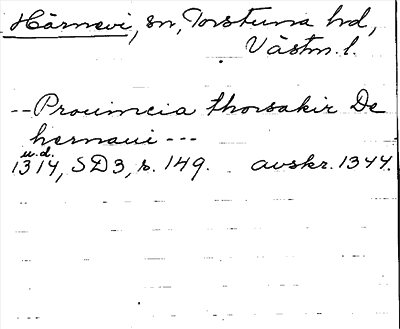 Härnevi, sn, Torstuna hd,
Västm. l.
-- Prouincia thorsakir De
hernaui ---
u.d.
1314, SD3, s. 149. avskr. 1344.